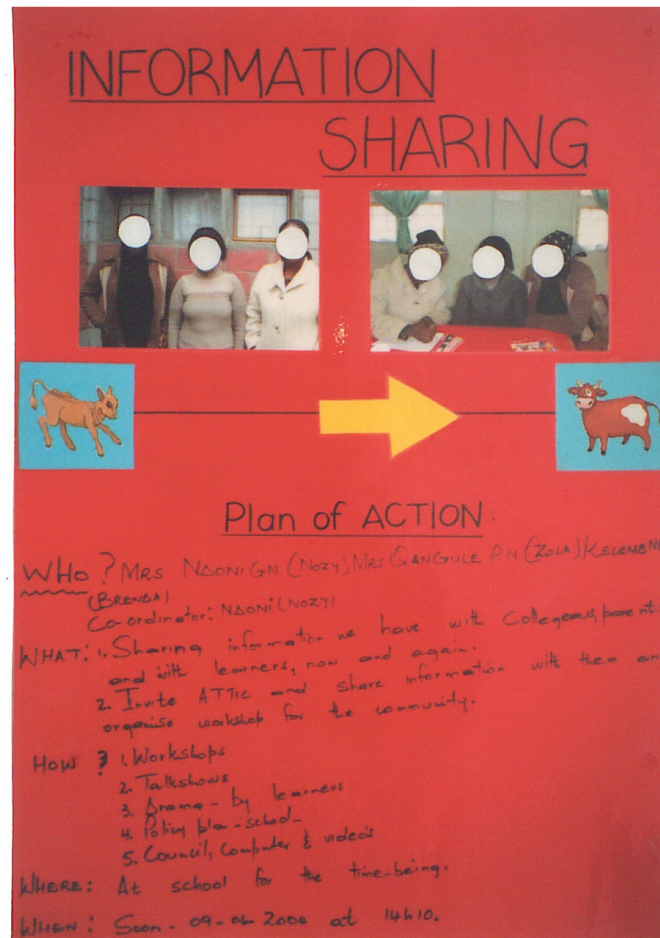 INFORMATION
SHARING
Plan of ACTION:
WHO? MRS NDONI G.N. (NOZY) MRS QANGULE P.N. (ZOLA) KELEMBENI
(BRENDA)
Co-ordinator: NDONI (NOZY)
WHAT: 1. Sharing information we have with Collegeous, parent
and with learners, now and again.
2. Invite ATTIC and share information with them an
organise workshop for the community.
HOW ? 1. Workshops
2. Talkshows
3. Drama - by learners
4. Policy plan - school -
5. Council, computer & videos
WHERE: At school for the time-being.
WHEN: Soon - 09-06-2004 at 14h10.